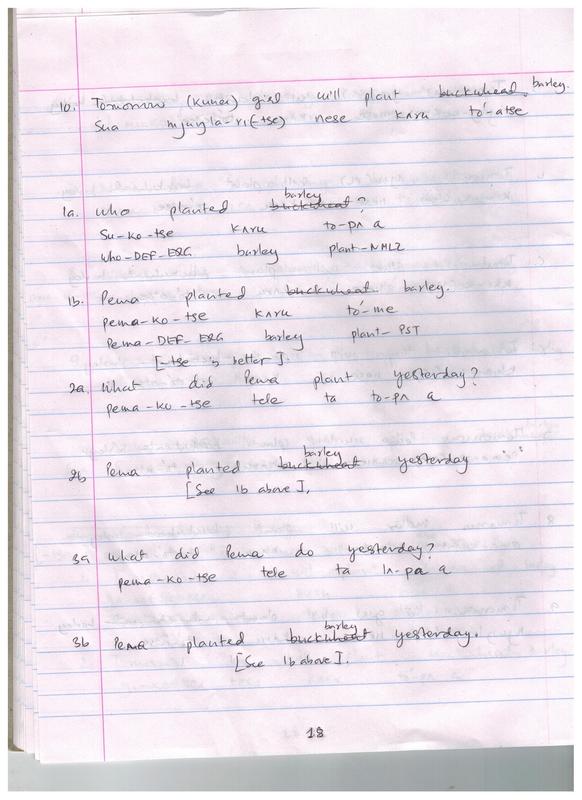 10. Tomorrow (Kunee) girl will plant buckwhead. barley.
Sua mjuŋla-ri(-tse) nese kʌru to'-atse
1a. who planted buckwheat barley?
Su-ko-tse kʌru to-pʌ a
who-DEF-ERG barley plant-NMLZ
1b. Pema planted buckwheat barley.
pema-ko-tse kʌru to'-me
Pema-DEF-ERG barley plant-PST
[-tse is better].
2a. What did Pema plant yesterday?
pema-ko-tse tele ta to-pʌ a
2b Pema planted buckwheat barley yesterday
[See 1b above].
3a What did Pema do yesterday?
pema-ko-tse tele ta lʌ-pa a
3b Pema planted buckwheat barley yesterday.
[See 1b above].
18